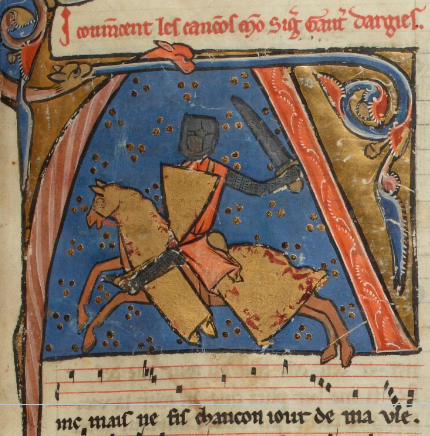 I coum̄cent les cancõs mõ Sig̃ Gaut̃ dargies.
Ainc mais ne fis chancon iour de ma vie.